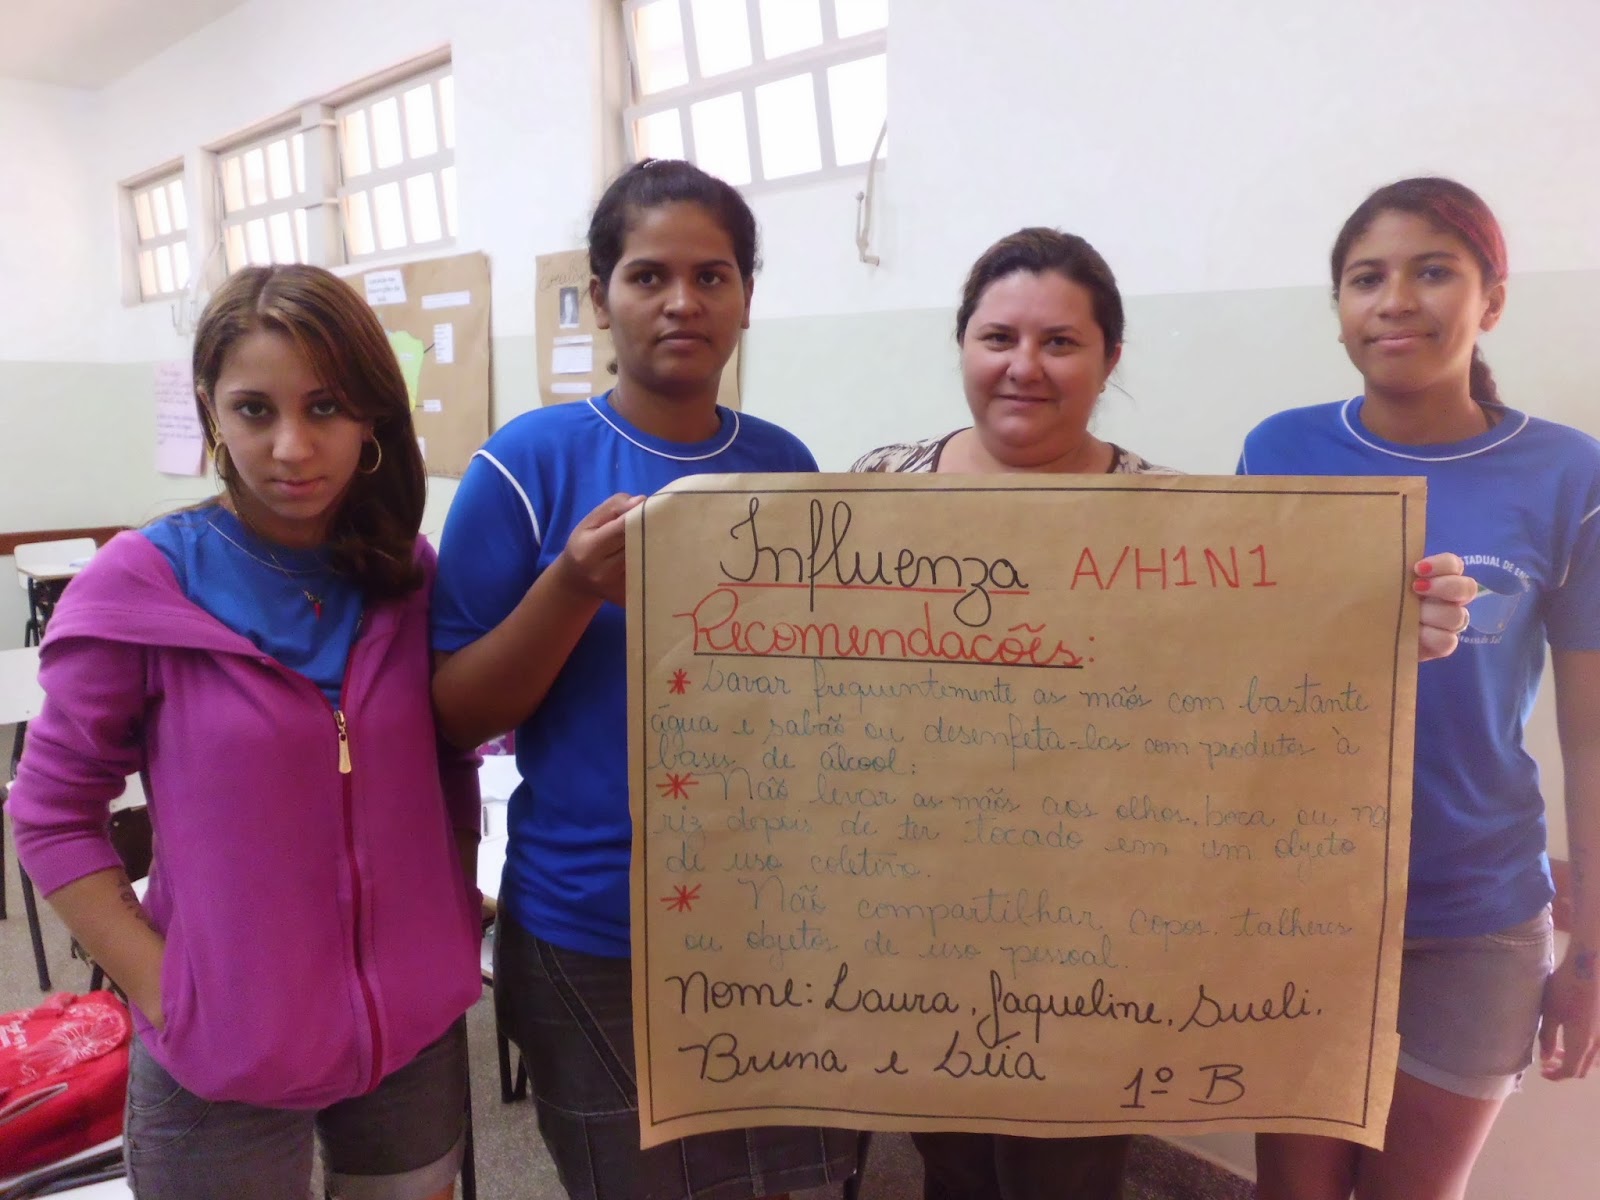 Influenza A/H1N1
Recomendacões:
* Lavar frequentemente as mãos com bastante
água e sabão ou desenfeta-las com produtos à
bases de álcool;
* Não levar as mãos aos olhos, boca ou na
riz depois de ter tocado em um objeto
de uso coletivo.
* Não compartilhar copos, talheres
ou objetos de uso pessoal.
Nome: Laura, Jaqueline, Sueli,
Bruna e Léia 1º B
STADUAL DE